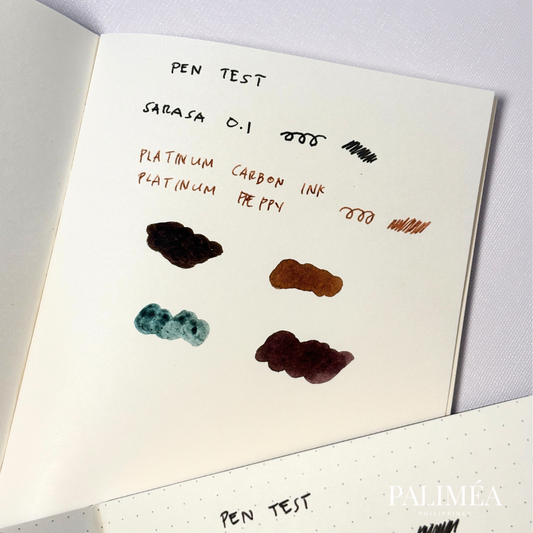 PEN TEST
SARASA 0.1
PLATINUM CARBON INK
PLATINUM PEPPY
PEN TEST
PALIMÉA
PHILIPPINES